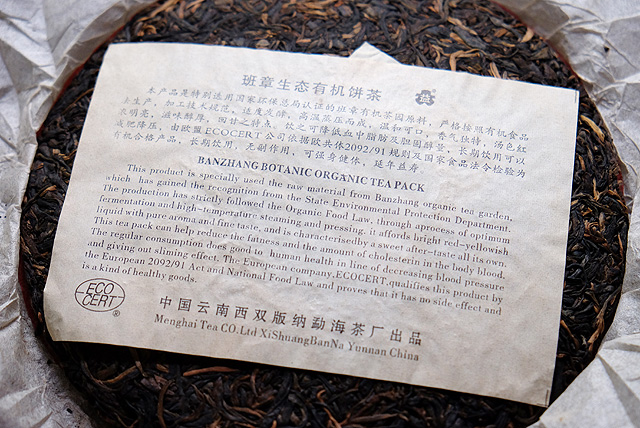 班章生态有机饼茶
本产品是特别选用国家环保总局认证的班章有机茶园原料，严格按照有机食品
去生产，加工技术规范，适度发酵，高温蒸压而成，温和可口，香气独特，汤色红
末明亮，滋味醇厚，回甘之特点，饮之可降低血中脂肪及胆固醇量，长期饮用可以
减肥降压，由欧盟ECOCERT公司依据欧共体2092/91规则及国家食品法令检验为
有机合格产品，长期饮用，无副作用，可强身健体，延年益寿
BANZHANG BOTANIC ORGANIC TEA PACK
This product is specially used the raw material from Banzhang organic tea garden,
which has gained the recognition from the State Environmental Protection Department.
The production has strictly followed the Organic Food Law, through aprocess of optimum
fermentation and high-temperature steaming and pressing, it affords bright red-yellowish
liquid with pure aroma and fine taste, and is characterised by a sweet after-taste all its own.
This tea pack can help reduce the fatness and the amount of cholesterin in the body blood,
The regular consumption does good to human health in line of decreasing blood pressure
and giving out sliming effect. The European company, ECOCERT, qualifies this product by
the European 2092/91 Act and National Food Law and proves that it has no side effect and
is a kind of healthy goods.
ECO
CERT
®
中国云南西双版纳勐海茶厂出品
Menghai Tea CO.Ltd XiShuangBanNa Yunnan China